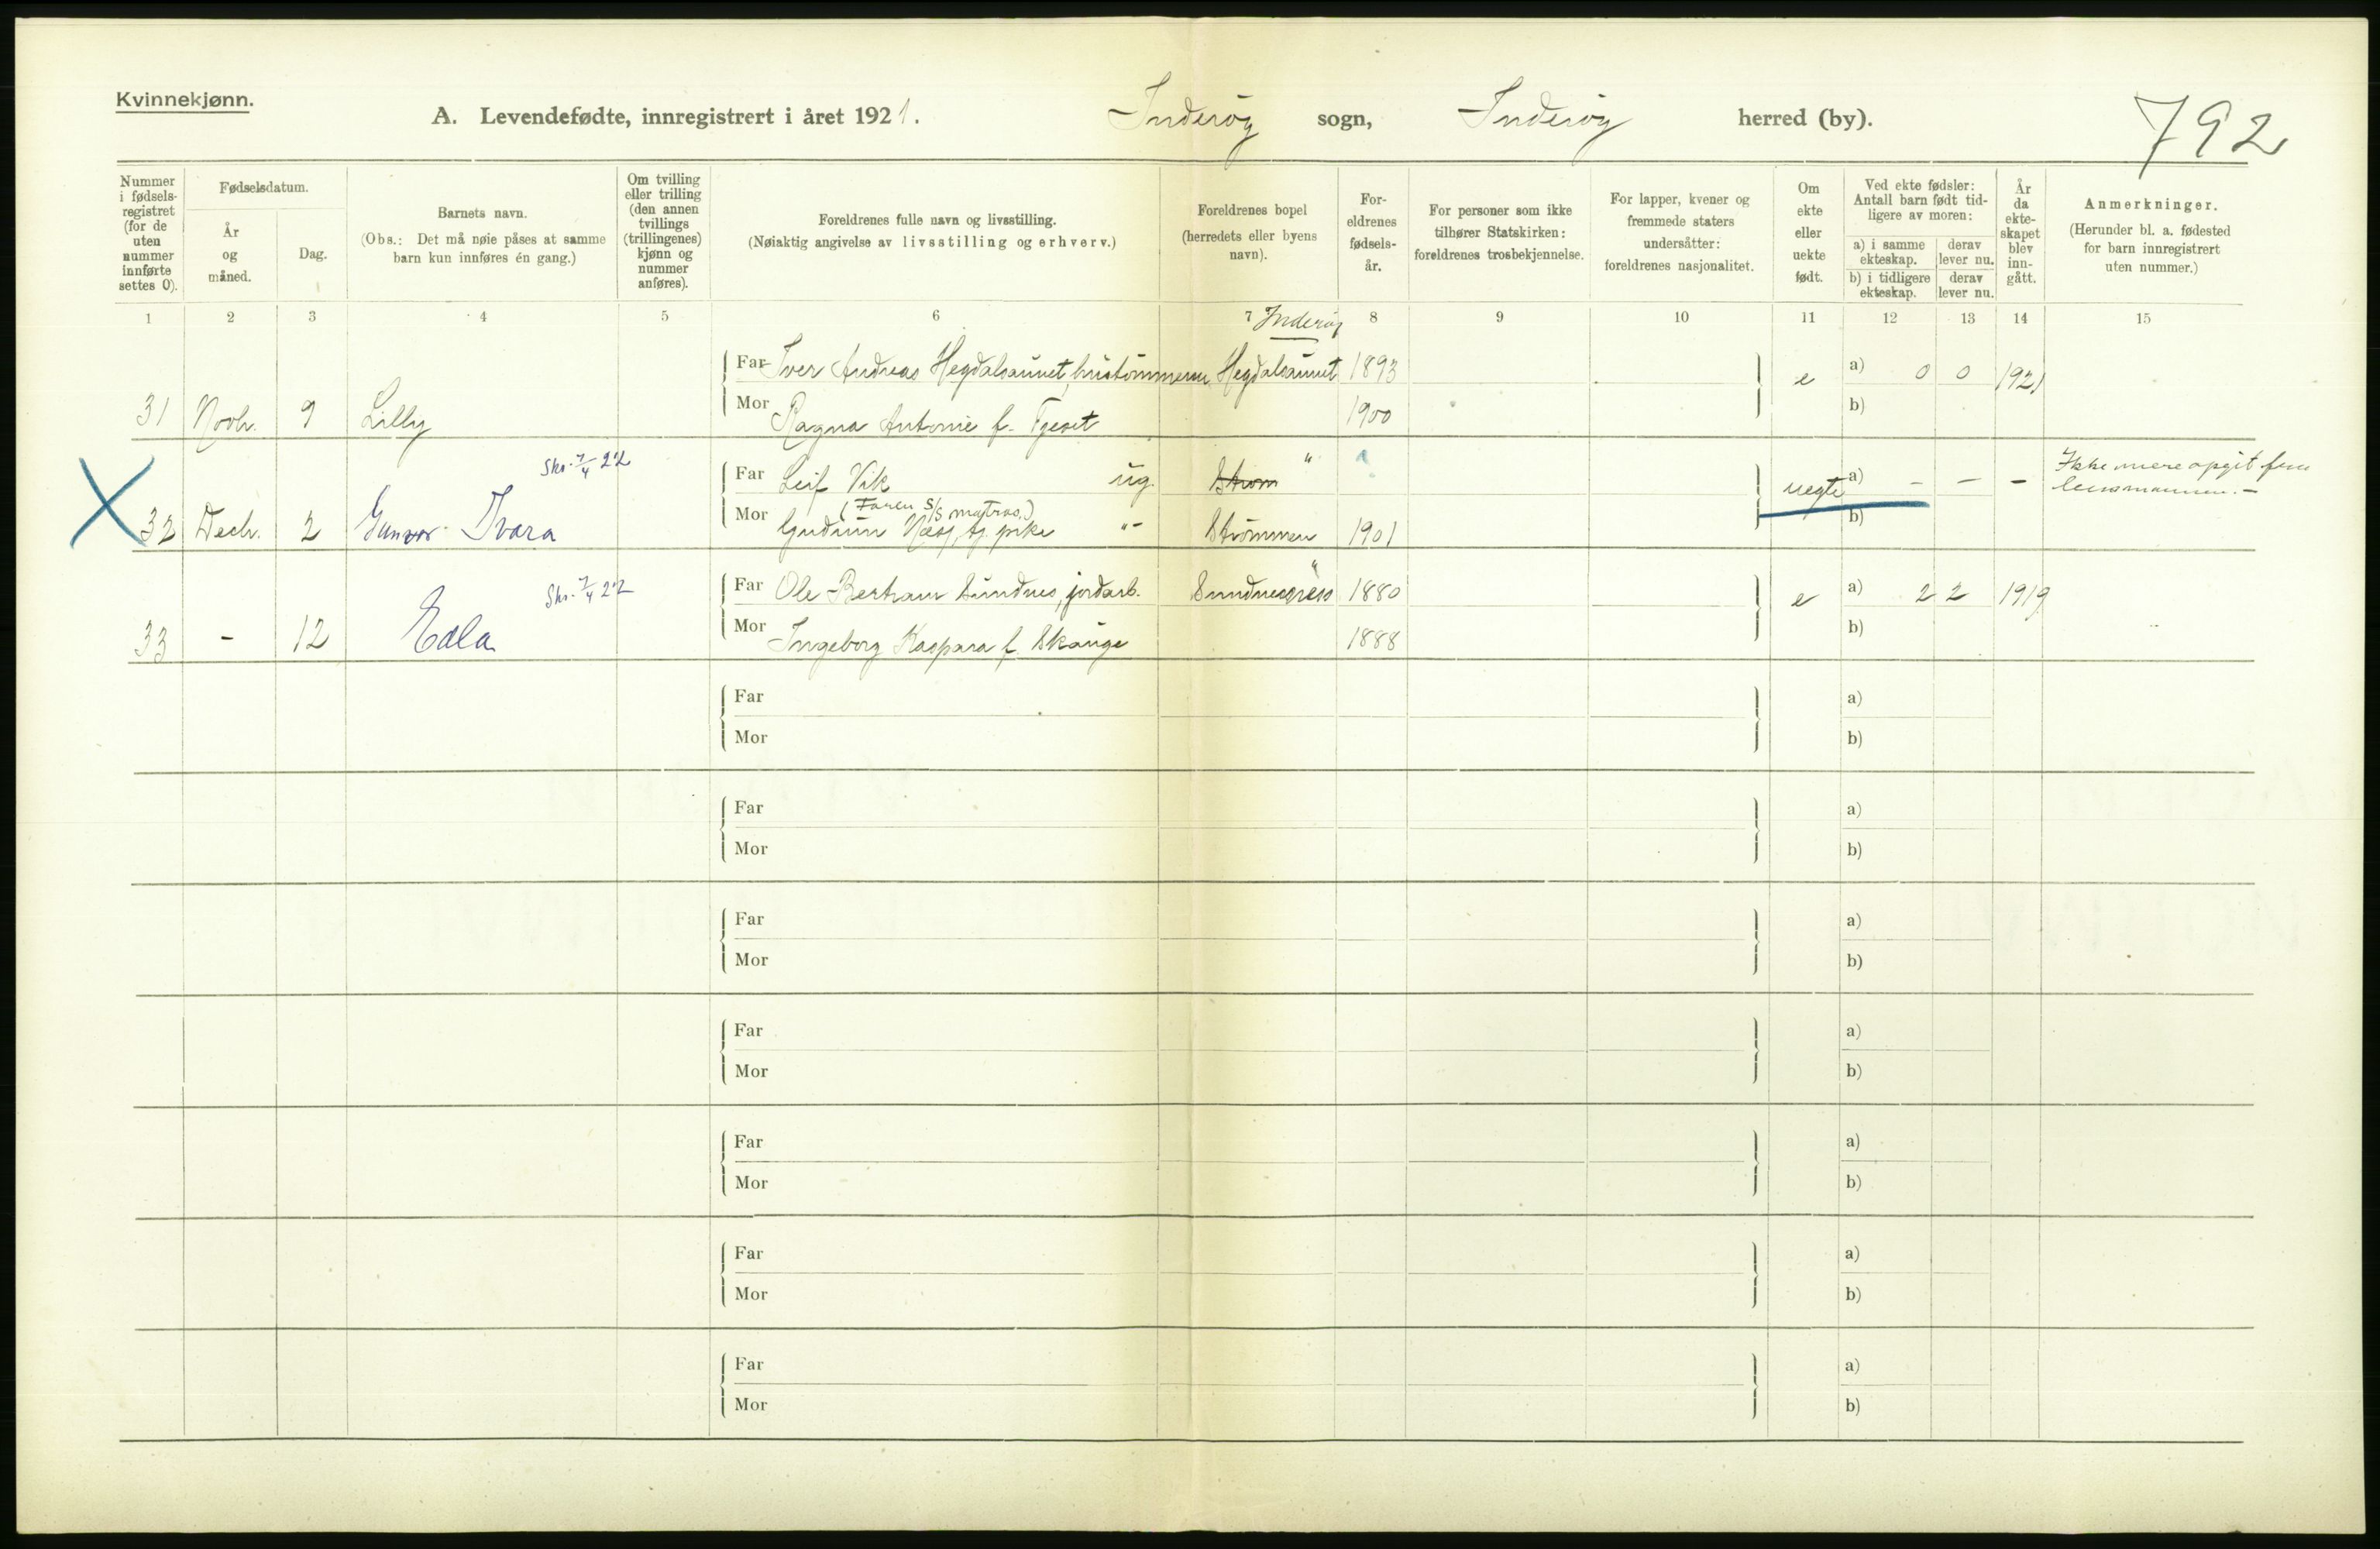 Kvinnekjønn.
A. Levendefødte, innregistrert i året 1921. Inderöy sogn, Inderöy herred (by). 792
Nummer i fødselsregistret (for de uten nummer innførte settes 0).
Fødselsdatum.
År og måned.
Dag.
Barnets navn.
(Obs.: Det må nøie påses at samme barn kun innføres én gang.)
Om tvilling eller trilling (den annen tvillings (trillingenes) kjønn og nummer anføres).
Foreldrenes fulle navn og livsstilling.
(Nøiaktig angivelse av livsstilling og erhverv.)
Foreldrenes bopel (herredets eller byens navn).
Foreldrenes fødselsår.
For personer som ikke tilhører Statskirken: foreldrenes trosbekjennelse.
For lapper, kvener og fremmede staters undersåtter: foreldrenes nasjonalitet.
Om ekte eller uekte født.
Ved ekte fødsler: Antall barn født tidligere av moren:
a) i samme ekteskap. derav lever nu.
b) i tidligere ekteskap. derav lever nu.
År da ekteskapet blev inngått.
Anmerkninger.
(Herunder bl. a. fødested for barn innregistrert uten nummer.)
1 2 3 4 5 6 7 8 9 10 11 12 13 14 15
Inderøy
Far Iver Andreas Hegdalsaunet, hustömmerm Hegdalsaunet 1893 e a) 0 0 1921
31 Novbr. 9 Lilly
Mor Ragna Antonie f. Tjeset 1900 b)
Skr. 7/4 22
Far Leif Vik ug. Strom " uegte a) - - - Ikke mere opgit fra lensmannen. -
(Faren S/S matros.)
X 32 Decbr. 2 Gunvor Ivara
Mor Gudrun Næss, tj. pike "- Strömmen 1901 b)
Skr. 7/4 22
Far Ole Bertram Sundnes, jordarb. Sundnesness " 1880 e a) 2 2 1919
33 - 12 Edla
Mor Ingeborg Kaspara f. Skauge 1888 b)
Far a)
Mor b)
Far a)
Mor b)
Far a)
Mor b)
Far a)
Mor b)
Far a)
Mor b)
Far a)
Mor b)
Far a)
Mor b)